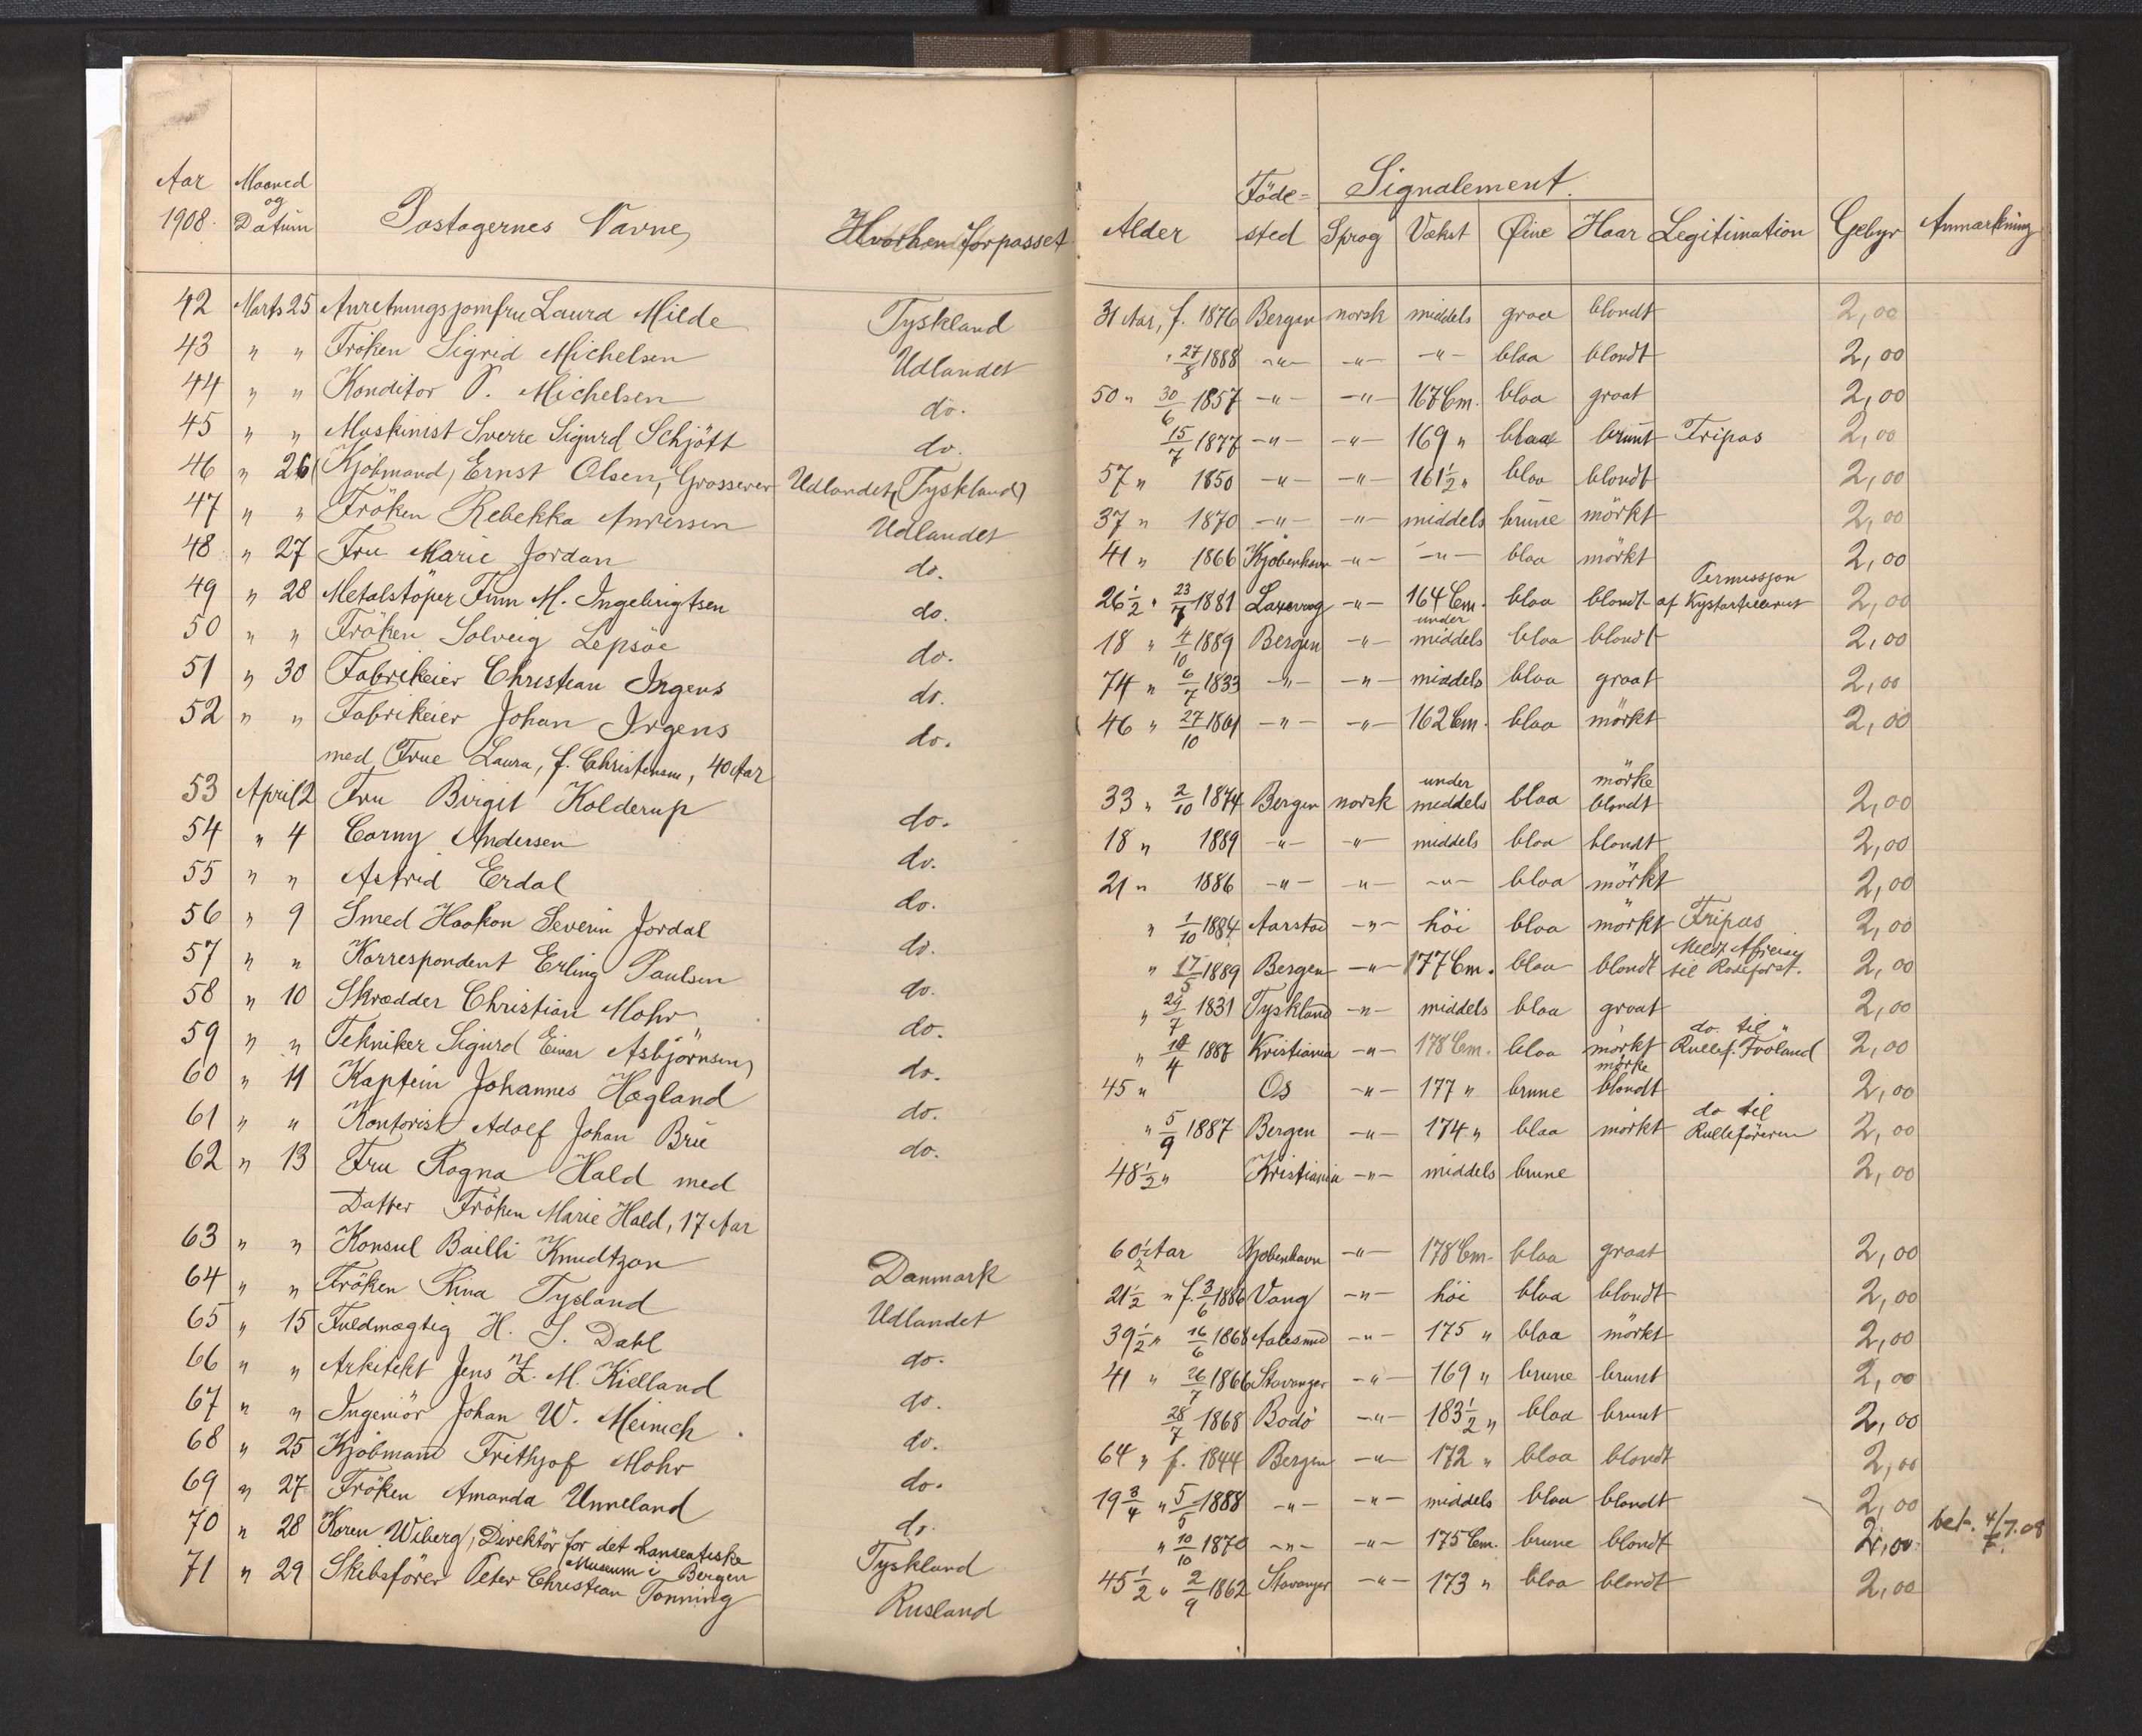 Aar Maaned og Hvorhen forpasset Alder Föde= Signalement.
1908. Datum Pastagernes Navne sted Sprog Vækst Øine Haar Legitimation Gebyr Anmærkning
42 Marts 25 Anretningsjomfru Laura Milde Tyskland 31 Aar, f. 1876 Bergen norsk middels graa blondt 2,00
43 " " Fröken Sigrid Michelsen Udlandet " 27/8 1888 -"- -"- -"- blaa blondt 2,00
44 " " Konditor P. Michelsen do. 50 " 30/6 1857 -"- -"- 167 Cm. blaa graat 2,00
45 " " Maskinist Sverre Sigurd Schjött do. 15/7 1877 -"- -"- 169 " blaa brunt Fripas 2,00
46 " 26 (Kjöbmand) Ernst Olsen, Grosserer Udlandet (Tyskland) 57 " 1850 -"- -"- 161 1/2 " blaa blondt 2,00
47 " " Fröken Rebekka Andersen Udlandet 37 " 1870 -"- -"- middels brune mörkt 2,00
48 " 27 Fru Marie Jordan do. 41 " 1866 Kjöbenhavn -"- -"- blaa mörkt 2,00
49 " 28 Metalstöper Finn M. Ingebrigtsen do. 26 1/2 " 23/7 1881 Laxevaag -"- 164 Cm. blaa blondt Permissjon af Kystartilleriet 2,00
50 " " Fröken Solveig Lepsöe do. 18 " 4/10 1889 Bergen -"- under middels blaa blondt 2,00
51 " 30 Fabrikeier Christian Irgens do. 74 " 6/7 1833 -"- -"- middels blaa graat 2,00
52 " " Fabrikeier Johan Irgens do. 46 " 27/10 1861 -"- -"- 162 Cm. blaa mörkt 2,00
med Frue Laura, f. Christensen, 40 Aar
53 April 2 Fru Birgit Kolderup do. 33 " 2/10 1874 Bergen norsk under middels blaa mörke blondt 2,00
54 " 4 Carny Andersen do. 18 " 1889 -"- -"- middels blaa blondt 2,00
55 " " Astrid Erdal do. 21 " 1886 -"- -"- -"- blaa mörkt 2,00
56 " 9 Smed Haakon Severin Jordal do. " 1/10 1884 Aarstad -"- höi blaa mörkt Fripas 2,00
57 " " Korrespondent Erling Paulsen do. " 17/5 1889 Bergen -"- 177 Cm. blaa blondt til 2,00
58 " 10 Skrædder Christian Mohr do. " 29/7 1831 Tyskland -"- middels blaa graat 2,00
59 " " Tekniker Sigurd Einar Asbjörnsen do. " 18/4 1887 Kristiania -"- 178 Cm. blaa mörkt do. til Rullef. Froland 2,00
60 " 11 Kaptein Johannes Hagland do. 45 " Os -"- 177 " brune mörke blondt 2,00
61 " " Kontorist Adolf Johan Brü do. " 5/9 1887 Bergen -"- 174 " blaa mörkt do til Rulleföreren 2,00
62 " 13 Fru Ragna Hald med 48 1/2 " Kristiania -"- middels brune 2,00
Datter Fröken Marie Hald, 17 Aar
63 " " Konsul Bailli Knudtzon Danmark 60 1/2 Aar Kjöbenhavn -"- 178 Cm. blaa graat 2,00
64 " " Fröken Rina Tysland Udlandet 21 1/2 " f. 3/6 1886 Vang -"- höi blaa blondt 2,00
65 " 15 Fuldmægtig H. S. Dahl do. 39 1/2 " 16/6 1868 Aalesund -"- 175 " blaa mörkt 2,00
66 " " Arkitekt Jens Z. M. Kielland do. 41 " 26/7 1866 Stavanger -"- 169 " brune brunt 2,00
67 " " Ingeniör Johan W. Meinich do. 28/7 1868 Bodö -"- 183 1/2 " blaa brunt 2,00
68 " 25 Kjöbmand Frithjof Mohr do. 64 " f. 1844 Bergen -"- 172 " blaa blondt 2,00
69 " 27 Fröken Amanda Unneland do. 19 3/4 " 5/5 1888 -"- -"- middels blaa blondt 2,00
70 " 28 Koren Wiberg, Direktör for det hanseatiske Museum i Bergen Tyskland " 10/10 1870 -"- -"- 175 Cm. brune blondt 2,00 bet. 4/7.08
71 " 29 Skibsförer Peter Christian Tonning Rusland 45 1/2 " 2/9 1862 Stavanger -"- 173 " blaa blondt 2,00